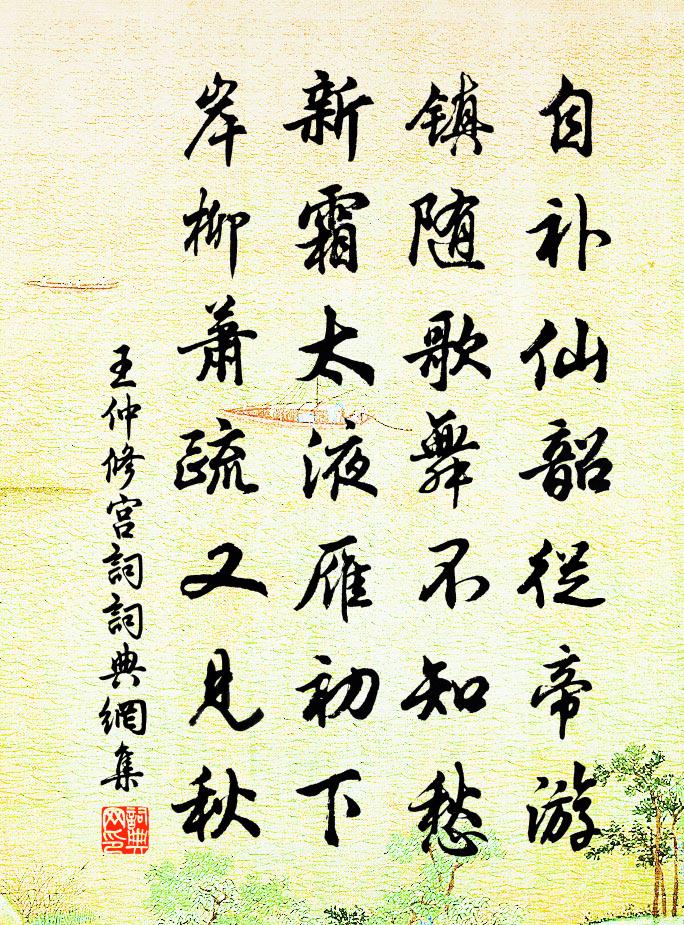 自补仙韶従帝游
镇随歌舞不知愁
新霜太液雁初下
岸柳萧疏又见秋
王仲修宫詞詞典網集
詞典网印